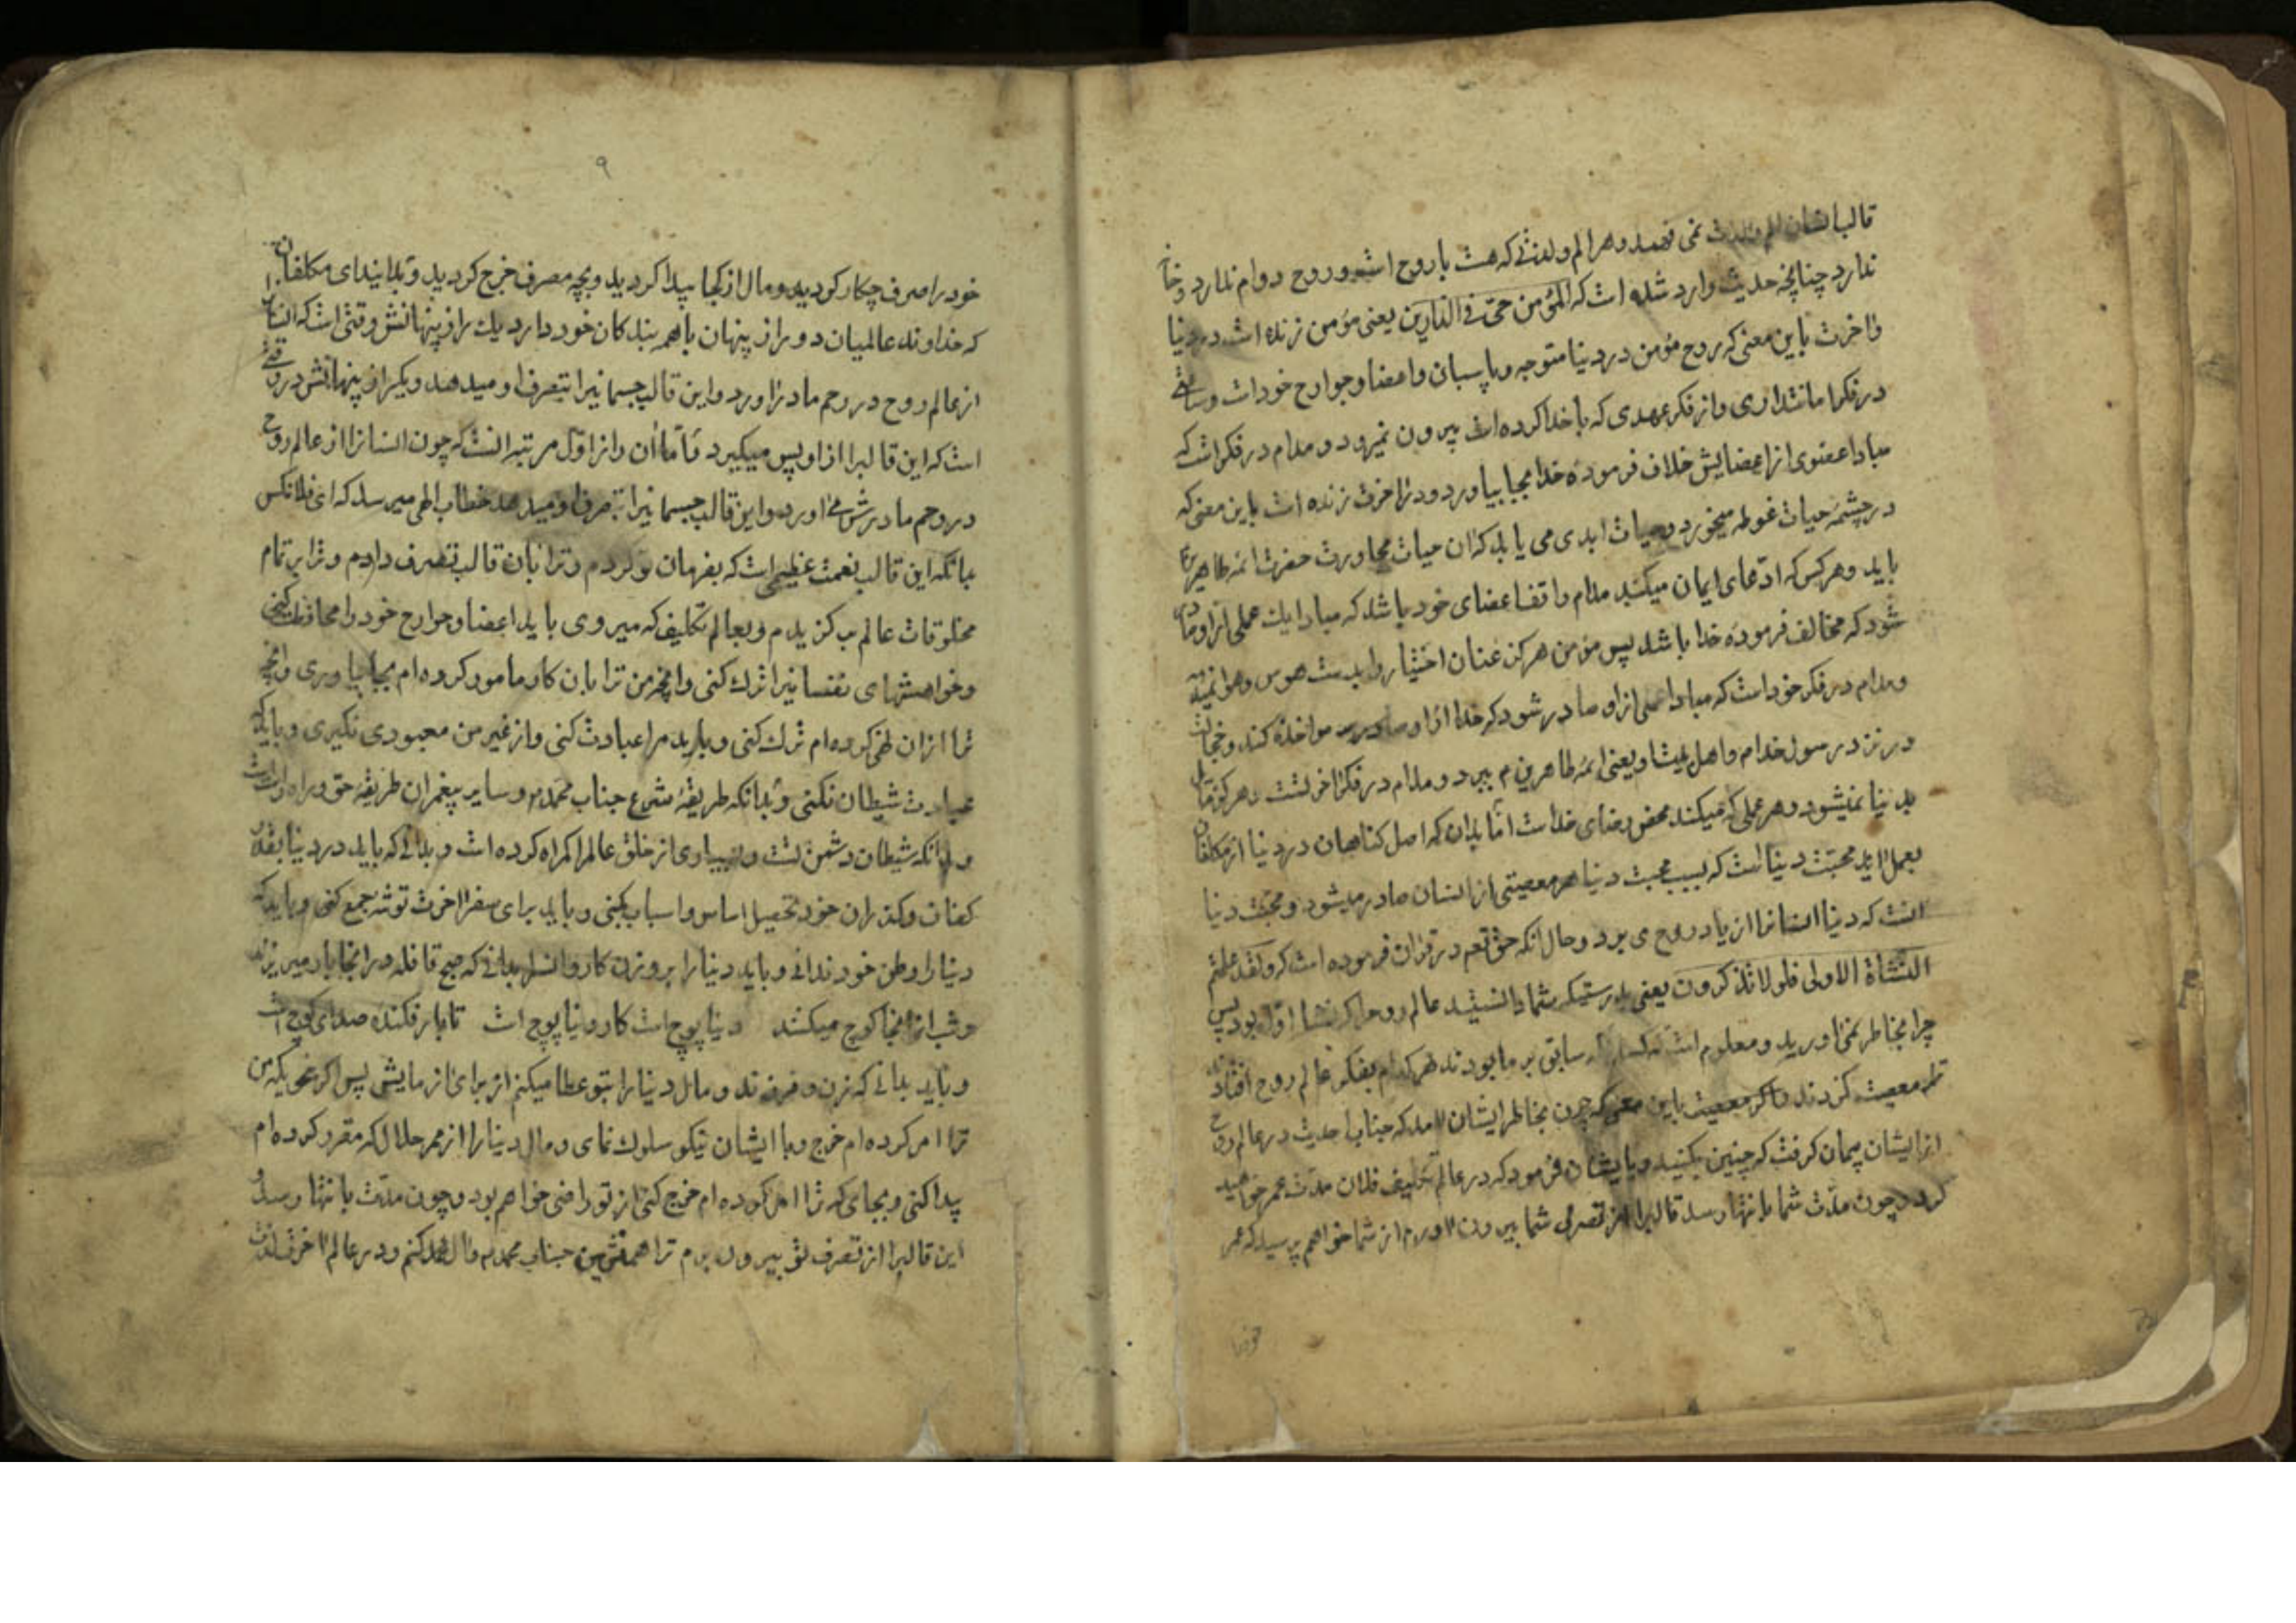 قالب ایشان الم ولذت نمی فهمد و هر الم ولذتی که هست با روح است و روح دوام ندارد و خا
ندارد چنانچه حدیث وارد شده است که المؤمن حیّ فی الدارین یعنی مؤمن زنده است در دنیا
و آخرت باین معنی که روح مؤمن در دنیا متوجه و پاسبان و اعضا و جوارح خود است و
در فکر امانتداری و از فکر عهدی که با خدا کرده است بیرون نمیرود و مدام در فکر است که
مبادا عضوی از اعضایش خلاف فرمودهٔ خدا بجا بیاورد و در آخرت زنده است باین معنی که
در چشمهٔ حیات غوطه میخورد و حیات ابدی می یابد که آن حیات مجاورت حضرت ائمه طاهرین
باید و هر کس که ادّعای ایمان میکند مدام واقف اعضای خود باشد که مبادا یک عملی از او
شود که مخالف فرمودهٔ خدا باشد پس مؤمن هرگز عنان اختیار را بدست هوس و هوا نمیدهد
و مدام در فکر خود است که مبادا عملی از او صادر شود که خدا از او مواخذه کند و خجالت
در نزد رسول خدا م و اهل بیت او یعنی ائمه طاهرین م ببرد و مدام در فکر آخرتست و هرگز
بدنیا نمیشود و هر عملی که میکند محض رضای خداست امّا بدان که اصل کناهان در دنیا از مکلفان
بعمل آید محبّت دنیا است که بسبب محبت دنیا هر معصیتی از انسان صادر میشود و محبّت دنیا
انست که دنیا انسانرا از یاد روح می برد و حال آنکه حق تعم در قرآن فرموده است که ولقد علمتم
النشأة الاولی فلولا تذکرون یعنی بدرستیکه شما دانستید عالم روح را که نشاء اوّل بود پس
چرا بخاطر نمی آورید و معلوم است که سابق بر ما بودند هر کدام بفکر عالم روح افتادند
ترک معصیت کردند باین معنی که چون بخاطر ایشان آمد که جناب احدیت در عالم روح
از ایشان پیمان گرفت که چنین بکنید و بایشان فرمود که در عالم تکلیف فلان مدت عمر خواهید
کرد و چون مدّت شما بانتها رسد قالبرا از تصرف شما بیرون آورم از شما خواهم پرسید که عمر
۹
خود را صرف چکار کردید و مال از کجا پیدا کردید و بچه مصرف خرج کردید و بدانید ای مکلفان
که خداوند عالمیان دو راز پنهان با همه بندکان خود دارد یک راز پنهانش وقتی است که انسانرا
از عالم روح در رحم مادر آورد و این قالب جسمانیرا بتصرف او میدهد و یکراز پنهانش در وقتی
است که این قالبرا از او پس میگیرد و امّا آن راز اوّل مرتبه انست که چون انسانرا از عالم روح
در رحم مادرش می آورد و این قالب جسمانیرا بتصرف او میدهد خطاب الهی میرسد که ای فلانکس
بدانکه این قالب نعمت عظیمی است که بفرمان تو کردم و ترا بآن قالب تصرف دادم و ترا بر تمام
مخلوقات عالم برگزیدم و بعالم تکلیف که میروی باید اعضا و جوارح خود را محافظت کنی
و خواهشهای نفسانیرا ترک کنی و آنچه من ترا بآن کار مامور کرده ام بجا بیاوری و آنچه
ترا از آن نهی کرده ام ترک کنی و باید مرا عبادت کنی و از غیر من معبودی نگیری و باید که
عبادت شیطان نکنی و بدانکه طریقهٔ شرع جناب محمد م و سایر پیغمران طریقهٔ حق و راه راست
و بدانکه شیطان دشمن تست و بسیاری از خلق عالم را کمراه کرده است و بدانی که باید در دنیا بقدر
کفاف و گذران خود تحصیل اساس و اسباب بکنی و باید برای سفر آخرت توشه جمع کنی و باید که
دنیا را وطن خود ندانی و باید دنیا را بر وزن کاروانسرا بدانی که صبح قافله در انجا بار میریزند
و شب از انجا کوچ میکنند دنیا پوچ است کار دنیا پوچ است تا بار فکندهٔ صدای کوچ است
و باید بدانی که زن و فرزند و مال دنیا را بتو عطا میکنم از برای آزمایش پس اگر نحویکه من
ترا امر کرده ام خرج و با ایشان نیکو سلوک نمای و مال دنیا را از ممر حلال که مقرر کرده ام
پیدا کنی و بجای که ترا امر کرده ام خرج کنی از تو راضی خواهم بود و چون مدّت بانتها رسد و
این قالبرا از تصرف تو بیرون برم ترا همنشین جناب محمد م و آل محمد کنم و در عالم آخرت لذت